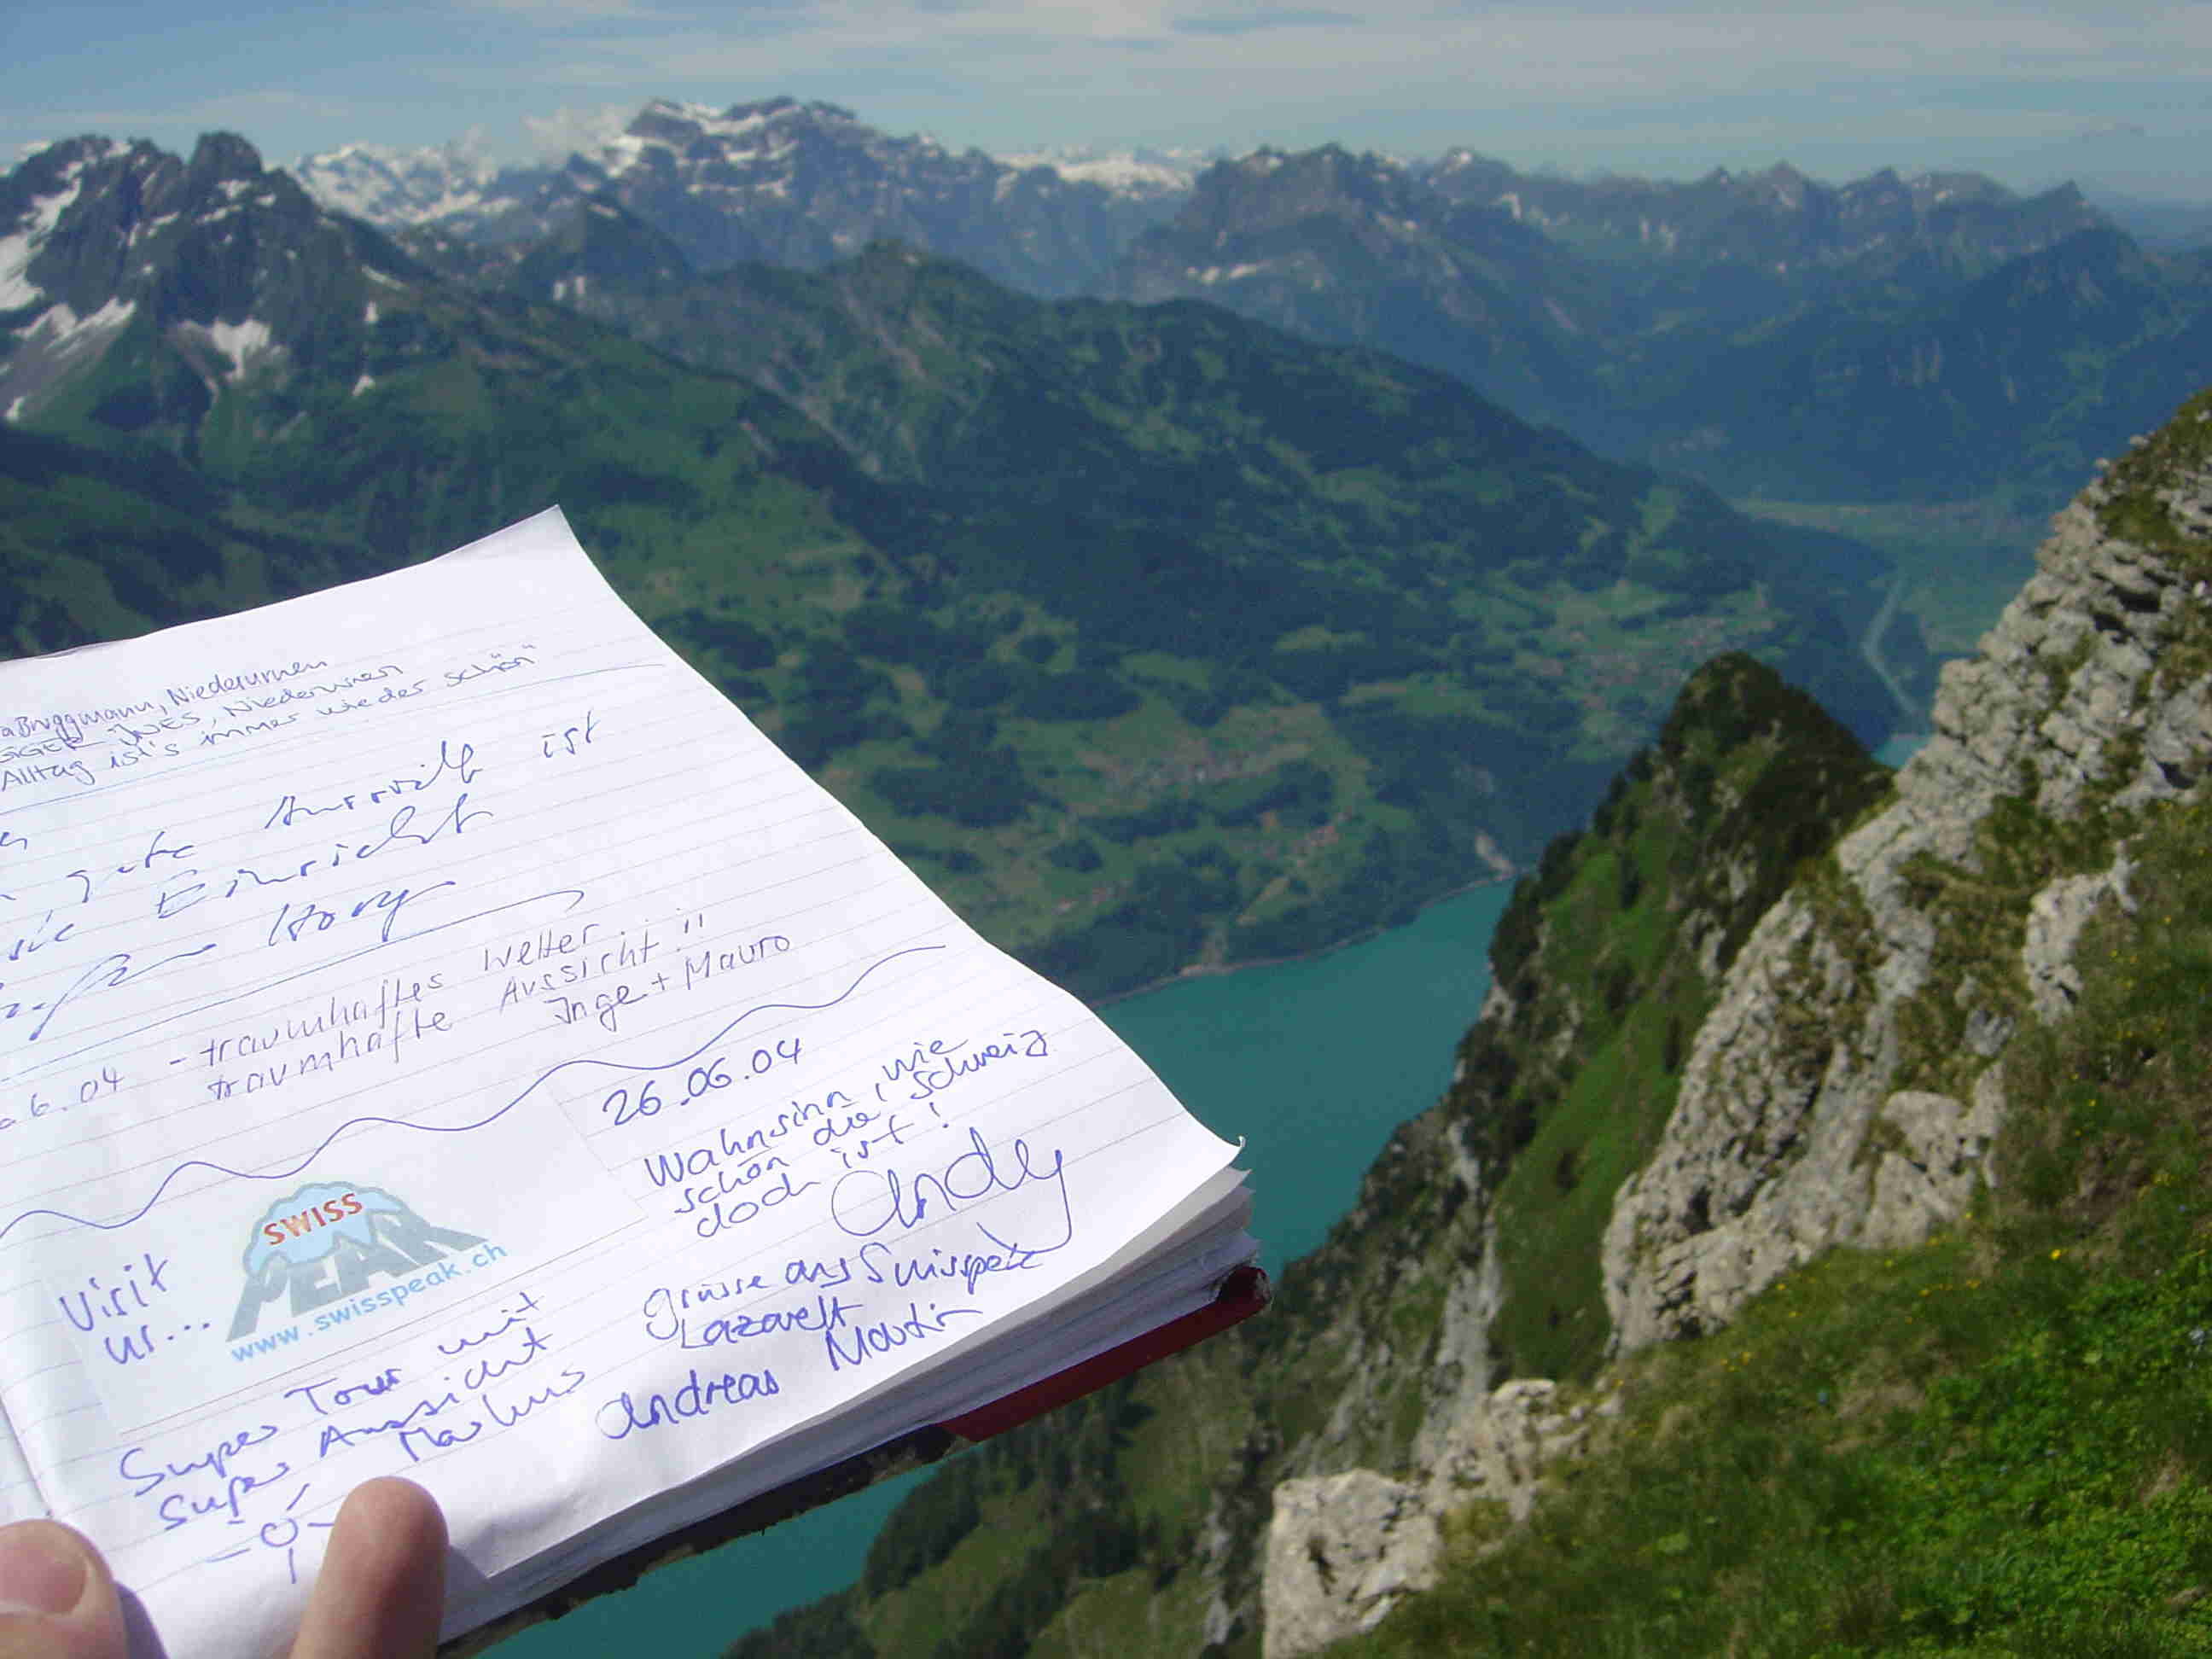 Bruggmann, Niederurnen
INES, Niederurnen
Alltag ist's immer wieder schön"
gute Aussicht ist
sie Einsicht
- traumhaftes Wetter
traumhafte Aussicht!!
6.04
Inge + Mauro
26.06.04
Wahnsinn, wie
schön die Schweiz
doch ist!
Andy
Visit
us...
SWISS
PEAK
www.swisspeak.ch
Grüsse aus Swisspeak
Lazarett
Andreas Martin
Super Tour mit
Super Aussicht
Markus